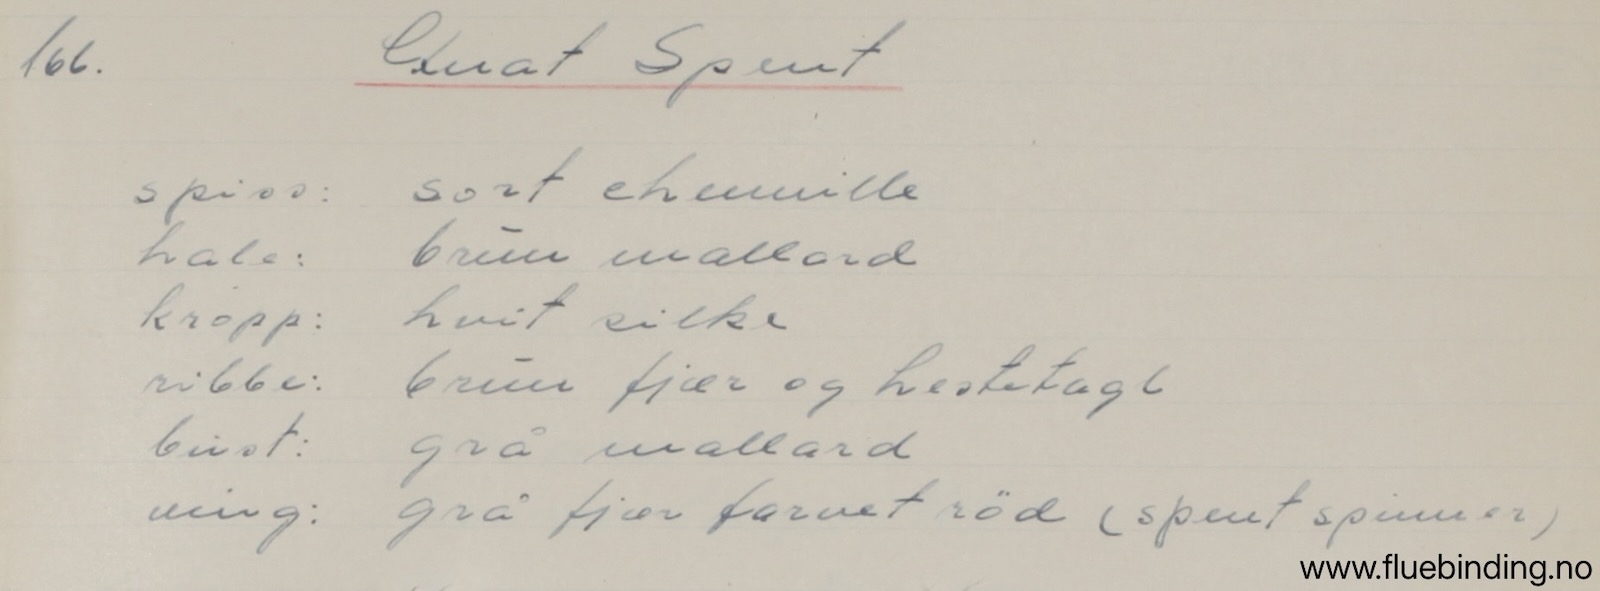 166. Gnat Spent
spiss: sort chenille
hale: brun mallard
kropp: hvit silke
ribbe: brun fjær og hestetagl
bust: grå mallard
ving: grå fjær farvet röd (spent spinner)
www.fluebinding.no